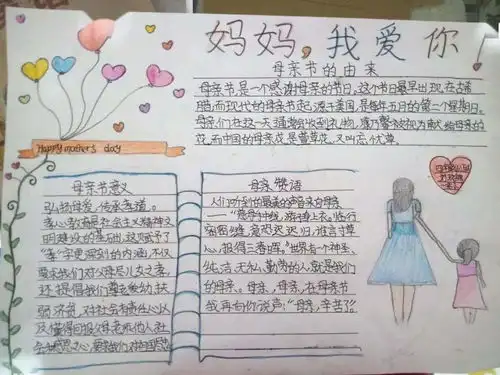 妈妈,我爱你
母亲节的由来
母亲节是一个感谢母亲的节日,这个节日最早出现在古希
腊,而现代的母亲节起源于美国,是每年五月的第二个星期日。
母亲们在这一天通常会收到礼物,康乃馨被视为献给母亲的
花,而中国的母亲花是萱草花,又叫忘忧草。
Happy mother's day
母亲节意义
弘扬母爱,传承孝道。
孝心教育是社会主义精神文
明建设的基础,这赋予了
"孝"字更深刻的内涵,不仅
要求我们对父母尽儿女之孝,
还提倡我们尊老爱幼扶
弱济贫,对社会有责任心以
及懂得回报父母老师他人社
母亲赞语
人们听到的最美的声音来自母亲
——"慈母手中线,游子身上衣。临行
密密缝,意恐迟迟归,谁言寸草
心,报得三春晖。"世界有个神圣、
纯洁、无私、勤劳的人,就是我们
的母亲。母亲,母亲,在母亲节
我再向你说声:"母亲,辛苦了"。